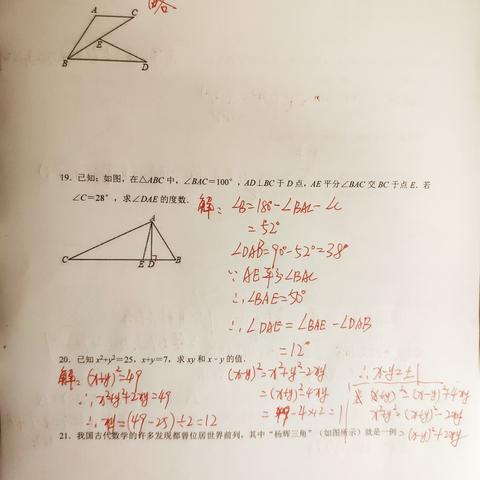 略
A
C
E
B
D
19. 已知：如图，在△ABC 中，∠BAC＝100°，AD⊥BC 于 D 点，AE 平分∠BAC 交 BC 于点 E．若
∠C＝28°，求∠DAE 的度数．
解：∠B=180-∠BAC-∠C
=52°
∠DAB=90°-52°=38°
∵AE平分∠BAC
∴∠BAE=50°
∴∠DAE=∠BAE-∠DAB
=12°
A
C
E
D
B
20. 已知 x²+y²＝25，x+y＝7，求 xy 和 x﹣y 的值．
解：(x+y)²=49
∴x²+y²+2xy=49
∴xy=(49-25)÷2=12
(x-y)²=x²+y²-2xy
=(x+y)²-4xy
=49-4×12=1
∴x-y=±1
(x+y)²=(x-y)²+4xy
x²+y²=(x+y)²-2xy
=(x-y)²+2xy
21. 我国古代数学的许多发现都曾位居世界前列，其中“杨辉三角”（如图所示）就是一例